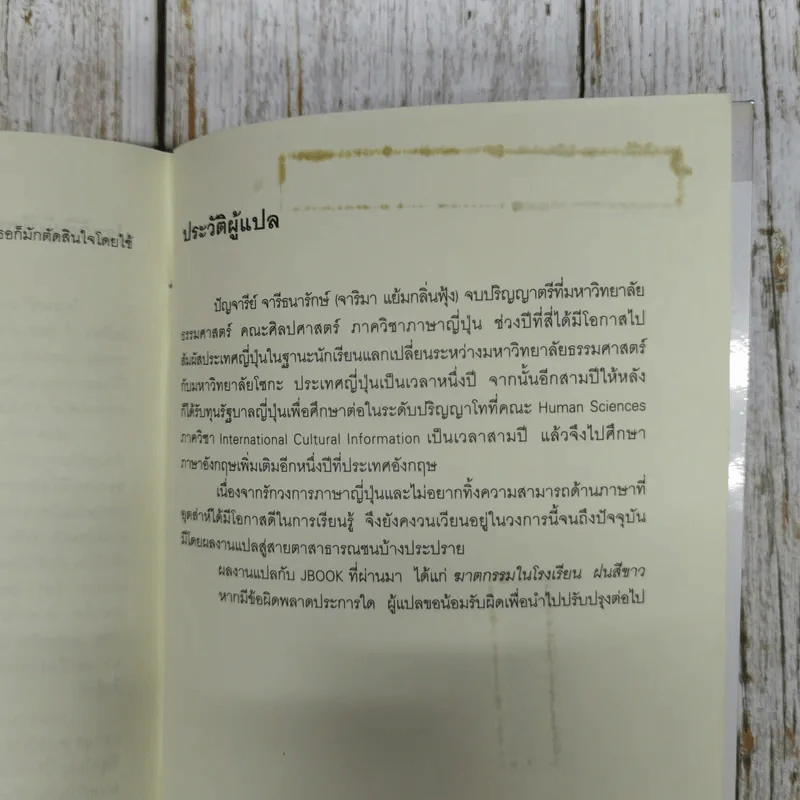 ธอก็มักตัดสินใจโดยใช้
ประวัติผู้แปล
ปัญจารีย์ จารีธนารักษ์ (จาริมา แย้มกลิ่นฟุ้ง) จบปริญญาตรีที่มหาวิทยาลัย
ธรรมศาสตร์ คณะศิลปศาสตร์ ภาควิชาภาษาญี่ปุ่น ช่วงปีที่สี่ได้มีโอกาสไป
สัมผัสประเทศญี่ปุ่นในฐานะนักเรียนแลกเปลี่ยนระหว่างมหาวิทยาลัยธรรมศาสตร์
กับมหาวิทยาลัยโซกะ ประเทศญี่ปุ่นเป็นเวลาหนึ่งปี จากนั้นอีกสามปีให้หลัง
ก็ได้รับทุนรัฐบาลญี่ปุ่นเพื่อศึกษาต่อในระดับปริญญาโทที่คณะ Human Sciences
ภาควิชา International Cultural Information เป็นเวลาสามปี แล้วจึงไปศึกษา
ภาษาอังกฤษเพิ่มเติมอีกหนึ่งปีที่ประเทศอังกฤษ
เนื่องจากรักวงการภาษาญี่ปุ่นและไม่อยากทิ้งความสามารถด้านภาษาที่
อุตส่าห์ได้มีโอกาสดีในการเรียนรู้ จึงยังคงวนเวียนอยู่ในวงการนี้จนถึงปัจจุบัน
มีโดยผลงานแปลสู่สายตาสาธารณชนบ้างประปราย
ผลงานแปลกับ JBOOK ที่ผ่านมา ได้แก่ ฆาตกรรมในโรงเรียน ฝนสีขาว
หากมีข้อผิดพลาดประการใด ผู้แปลขอน้อมรับผิดเพื่อนำไปปรับปรุงต่อไป